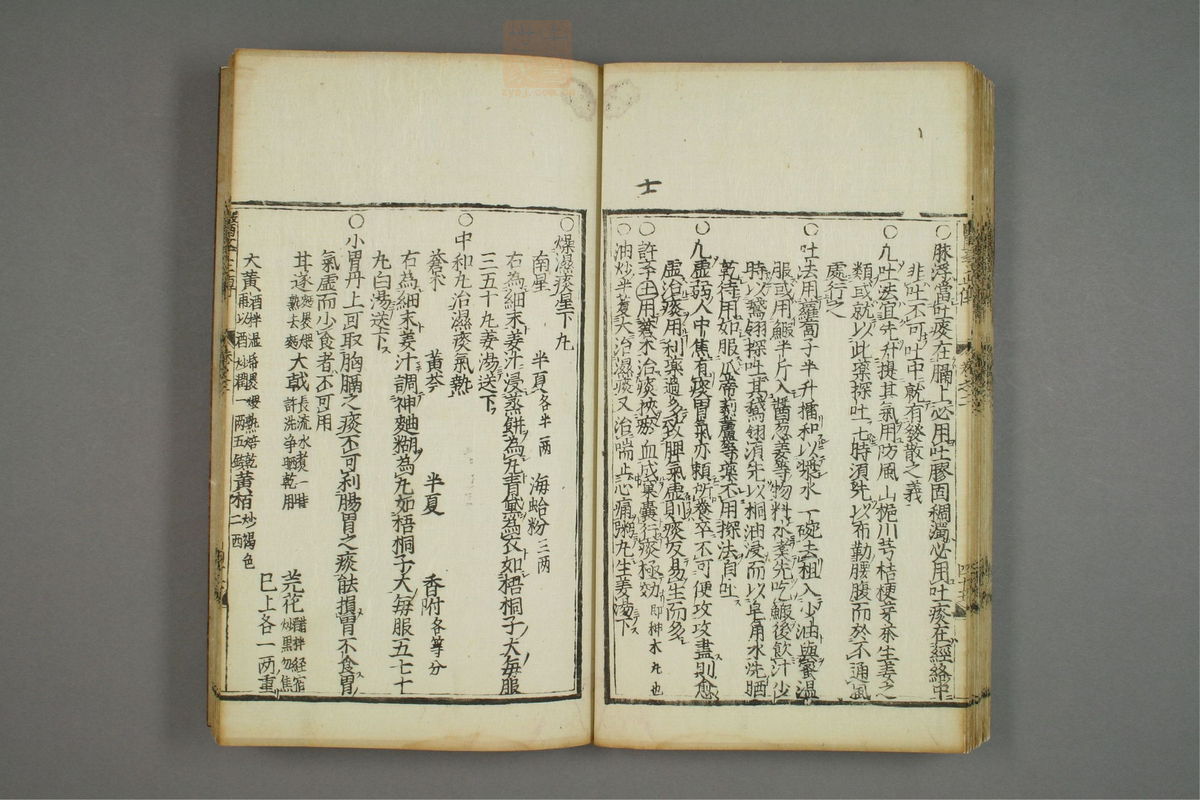 士
○脉浮當吐痰在膈上必用吐膠固稠濁必用吐痰在經絡中
非吐不可吐中就有發散之義
○凡吐法宜先升提其氣用防風山梔川芎桔梗芽茶生姜之
類或就以此藥探吐吐時須先以布勒腰腹而於不通風
處行之
○吐法用蘿蔔子半升擂和以漿水一碗去粗入少油與蜜溫
服或用蝦半斤入醬葱姜等物料水煮先吃蝦後飲汁少
時以鵝翎探吐其鵝翎須先以桐油浸而以皂角水洗晒
乾待用如服瓜蒂藜蘆等藥不用探法自吐
○凡虛弱人中焦有痰胃氣亦賴所養卒不可便攻攻盡則愈
虛治痰用利藥過多致脾氣虛則痰反易生而多
○許學士用蒼朮治痰挾瘀血成窠囊行痰極効即神朮丸也
○油炒半夏大治濕痰又治喘止心痛粥丸生姜湯下
○燥濕痰星下九
南星 半夏各半一兩 海蛤粉三兩
右為細末姜汁浸蒸餅為丸青黛為衣如梧桐子大每服
三五十丸姜湯送下
○中和丸治濕痰氣熱
蒼朮 黃芩 半夏 香附各等分
右為細末姜汁調神麯糊為丸如梧桐子大每服五七十
九白湯送下
○小胃丹上可取胸膈之痰下可利腸胃之痰能損胃不食胃
氣虛而少食者不可用
甘遂麫裹煨熟去麫 大戟長流水煮一時許洗净晒乾用 芫花醋拌經宿炒黑勿焦
大黃酒拌濕紙裹煨熟焙乾再以酒炒潤一兩五錢 黃栢炒褐色二兩 已上各一兩重